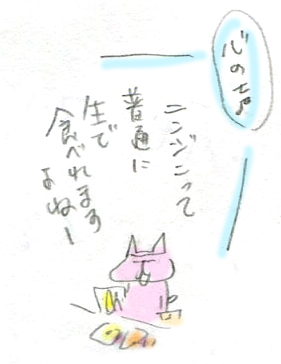 心の声
ニンジンって
普通に
生で
食べれます
よねー